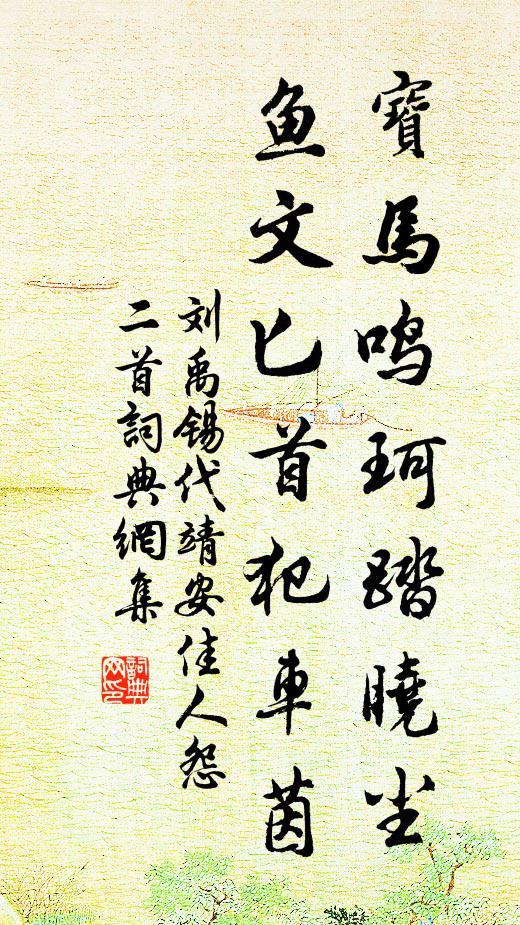 寶馬鸣珂踏曉尘
鱼文匕首犯車茵
刘禹锡代靖安佳人怨
二首詞典網集
詞典网印